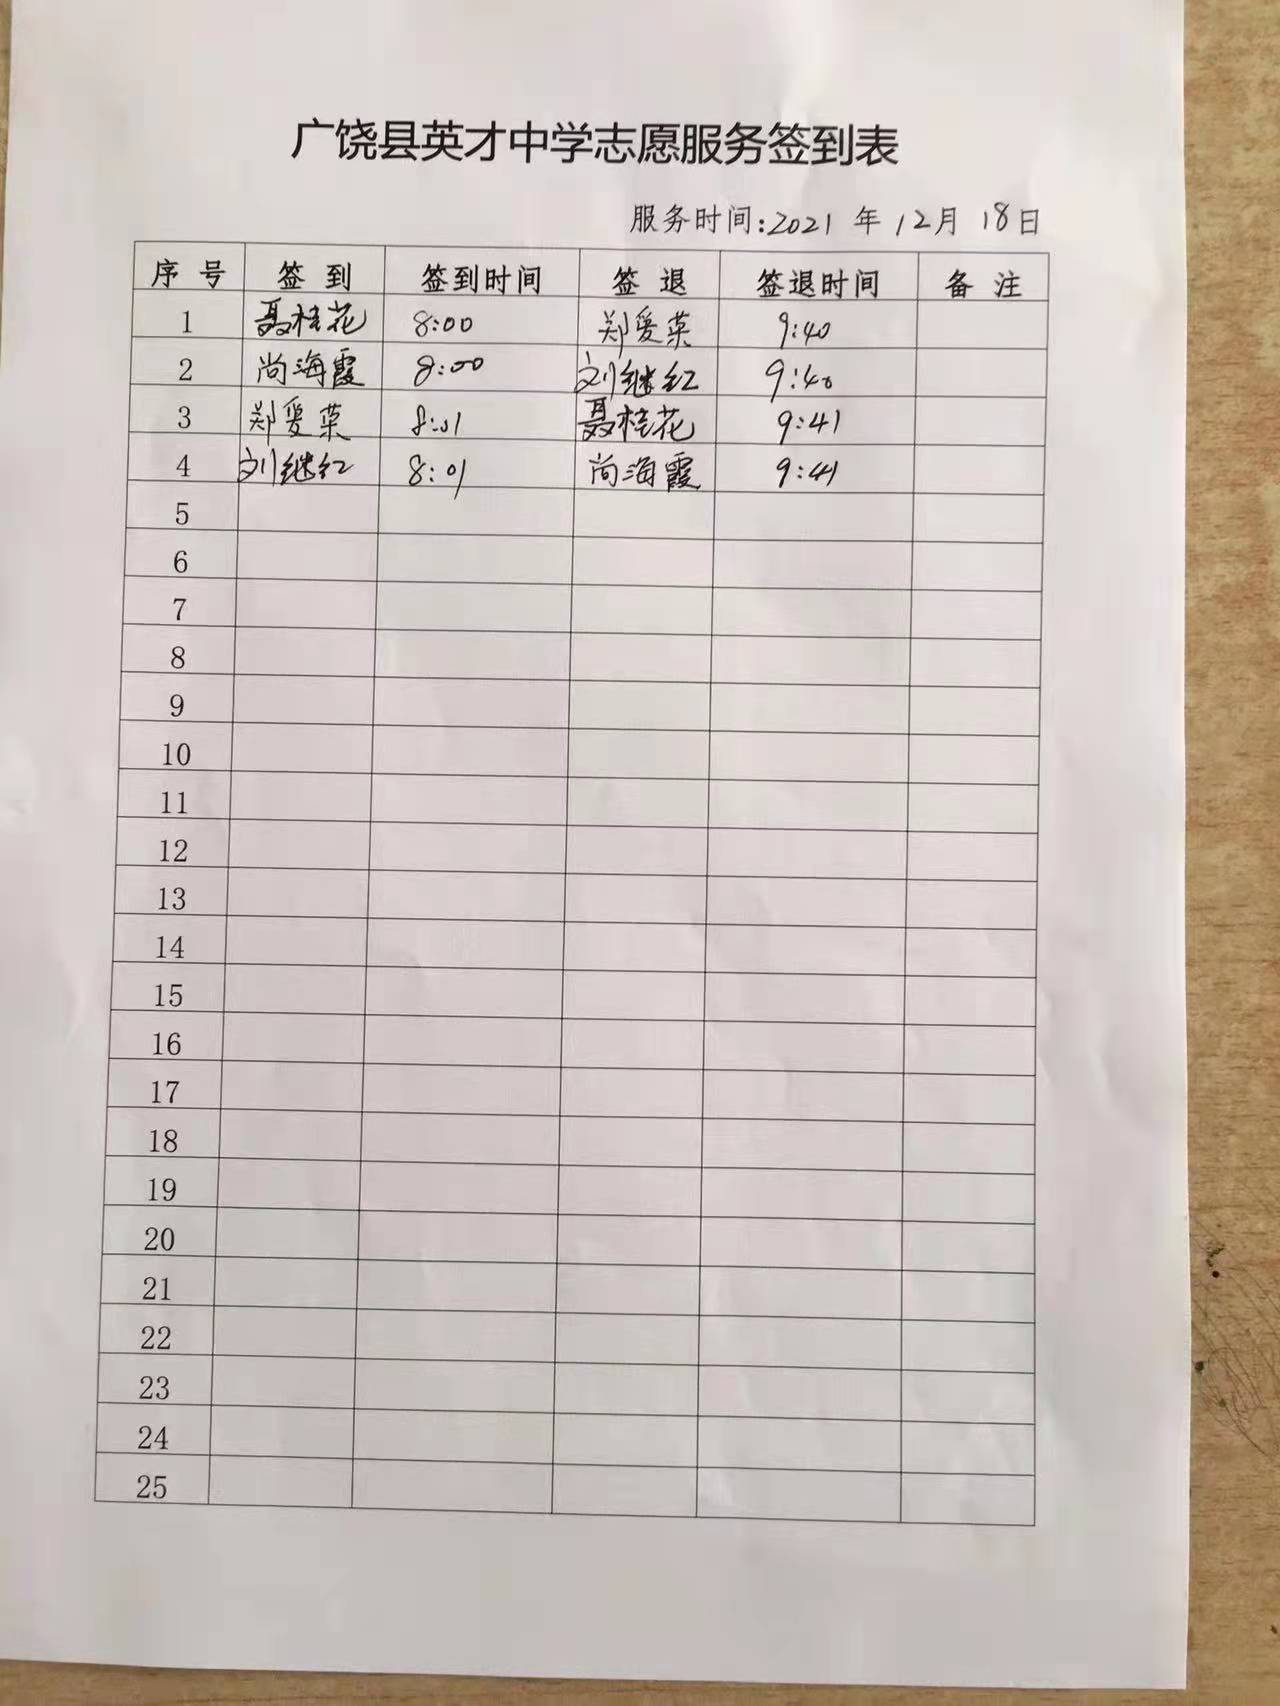 广饶县英才中学志愿服务签到表
服务时间:2021 年 12月 18日
序号 签到 签到时间 签退 签退时间 备注
1 聂桂花 8:00 郑爱菜 9:40
2 尚海霞 8:00 刘继红 9:40
3 郑爱菜 8:01 聂桂花 9:41
4 刘继红 8:01 尚海霞 9:41
5
6
7
8
9
10
11
12
13
14
15
16
17
18
19
20
21
22
23
24
25